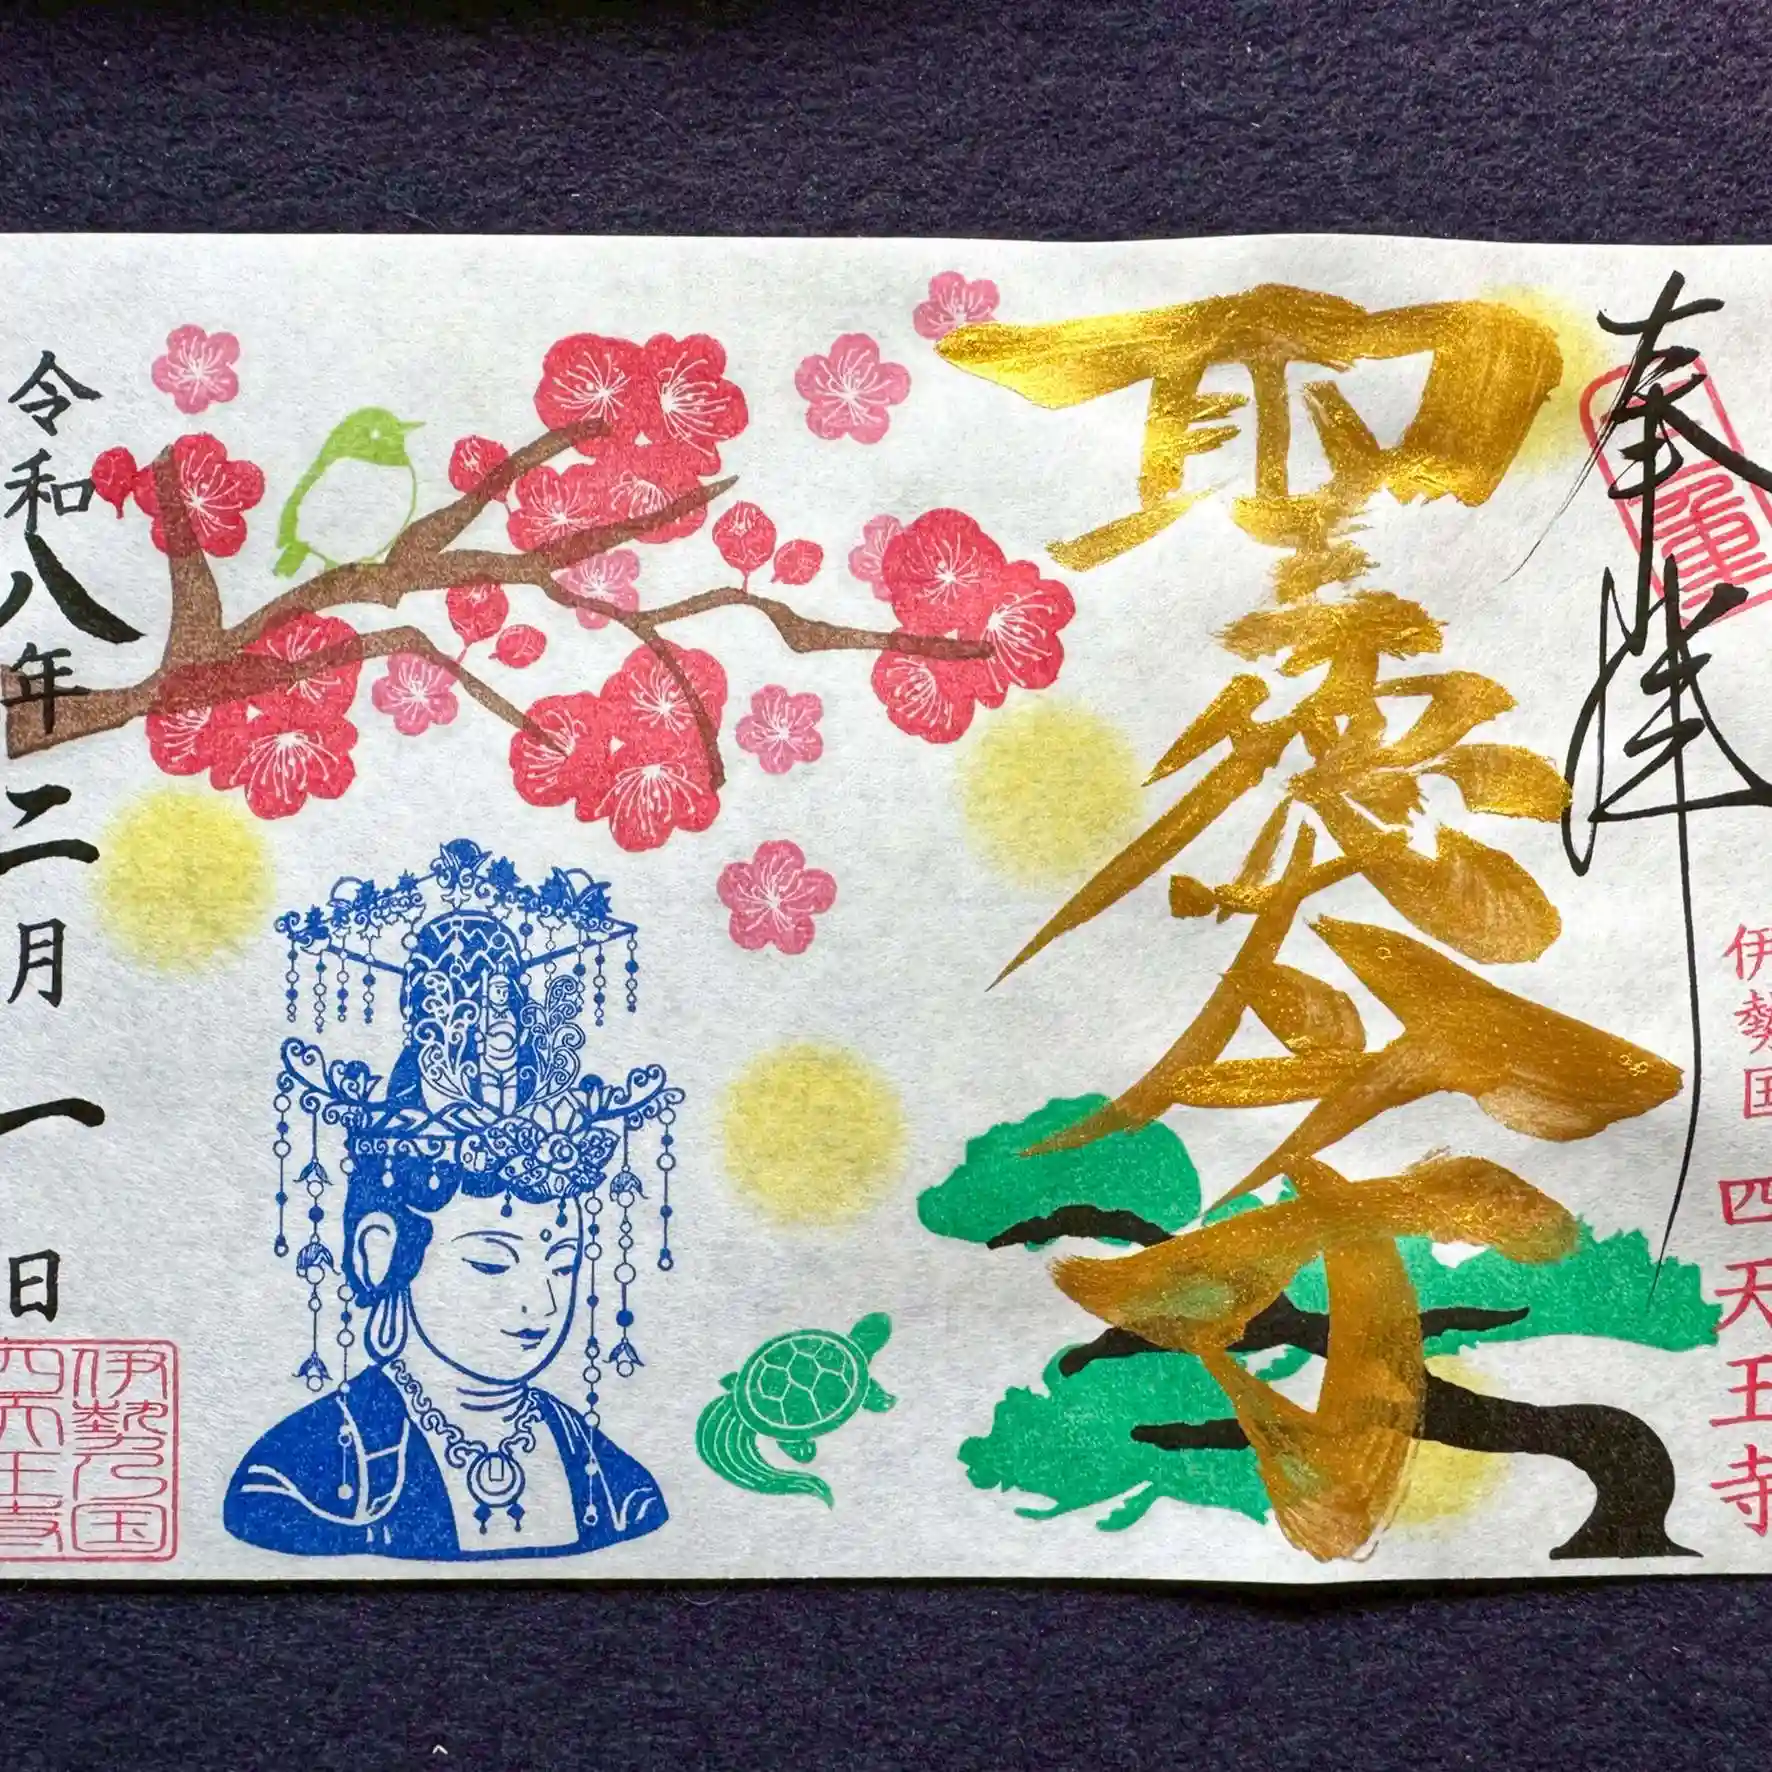 奉拝
伊勢国 四天王寺
聖徳太子
令和八年二月一日
伊勢乃国
四天王寺